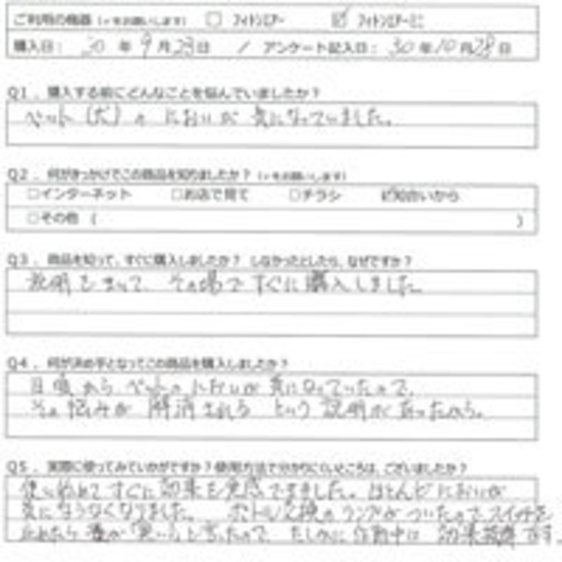 ご利用の機器 (✓をお願いします) □ フィトンエアー ☑ フィトンエアーミニ
購入日: 30 年 9 月 23 日 / アンケート記入日: 30 年 10 月 28 日
Q1. 購入する前にどんなことを悩んでいましたか?
ペット (犬) の においが 気になっていました。
Q2. 何がきっかけでこの商品を知りましたか? (✓をお願いします)
□インターネット □お店で見て □チラシ ☑知合いから
□その他 ( )
Q3. 商品を知って、すぐに購入しましたか? しなかったとしたら、なぜですか?
説明をきって、その場で すぐに購入しました
Q4. 何が決め手となってこの商品を購入しましたか?
日頃から、ペットの においが 気になっていたので、
その悩みが 解消される という 説明があったから。
Q5. 実際に使ってみていかがですか?使用方法で分かりにくいところは、ございましたか?
使い始めて すぐに 効果を実感できました。ほとんどにおいが
気にならなくなりました。 ボトル交換のランプがついたのでスイッチを
止めたら 妻が と言ったので、たしかに作動中は 効果 です。